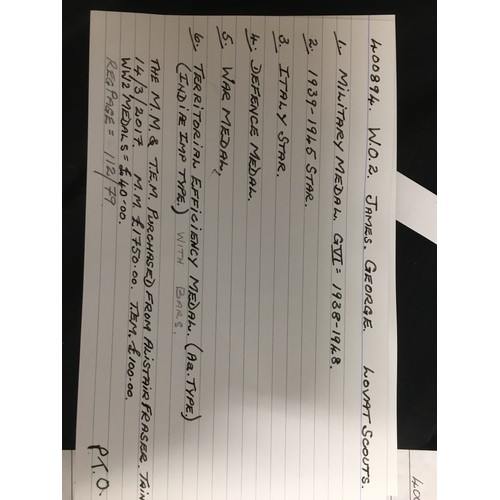 400894. W.O.2. JAMES. GEORGE. LOVAT SCOUTS.
1. MILITARY MEDAL. GVI = 1938-1948.
2. 1939-1945 STAR.
3. ITALY STAR.
4. DEFENCE MEDAL.
5. WAR MEDAL.
6. TERRITORIAL EFFICIENCY MEDAL. (Aa. TYPE.)
(INDIAE IMP TYPE.) WITH BARS.
THE M.M. & T.E.M. PURCHASED FROM ALISTAIR FRASER. TAIN
14/3/2017. M.M. £1750.00. T.E.M. £100.00.
WW2 MEDALS = £40.00.
REG PAGE = 112/79
P.T.O.
400